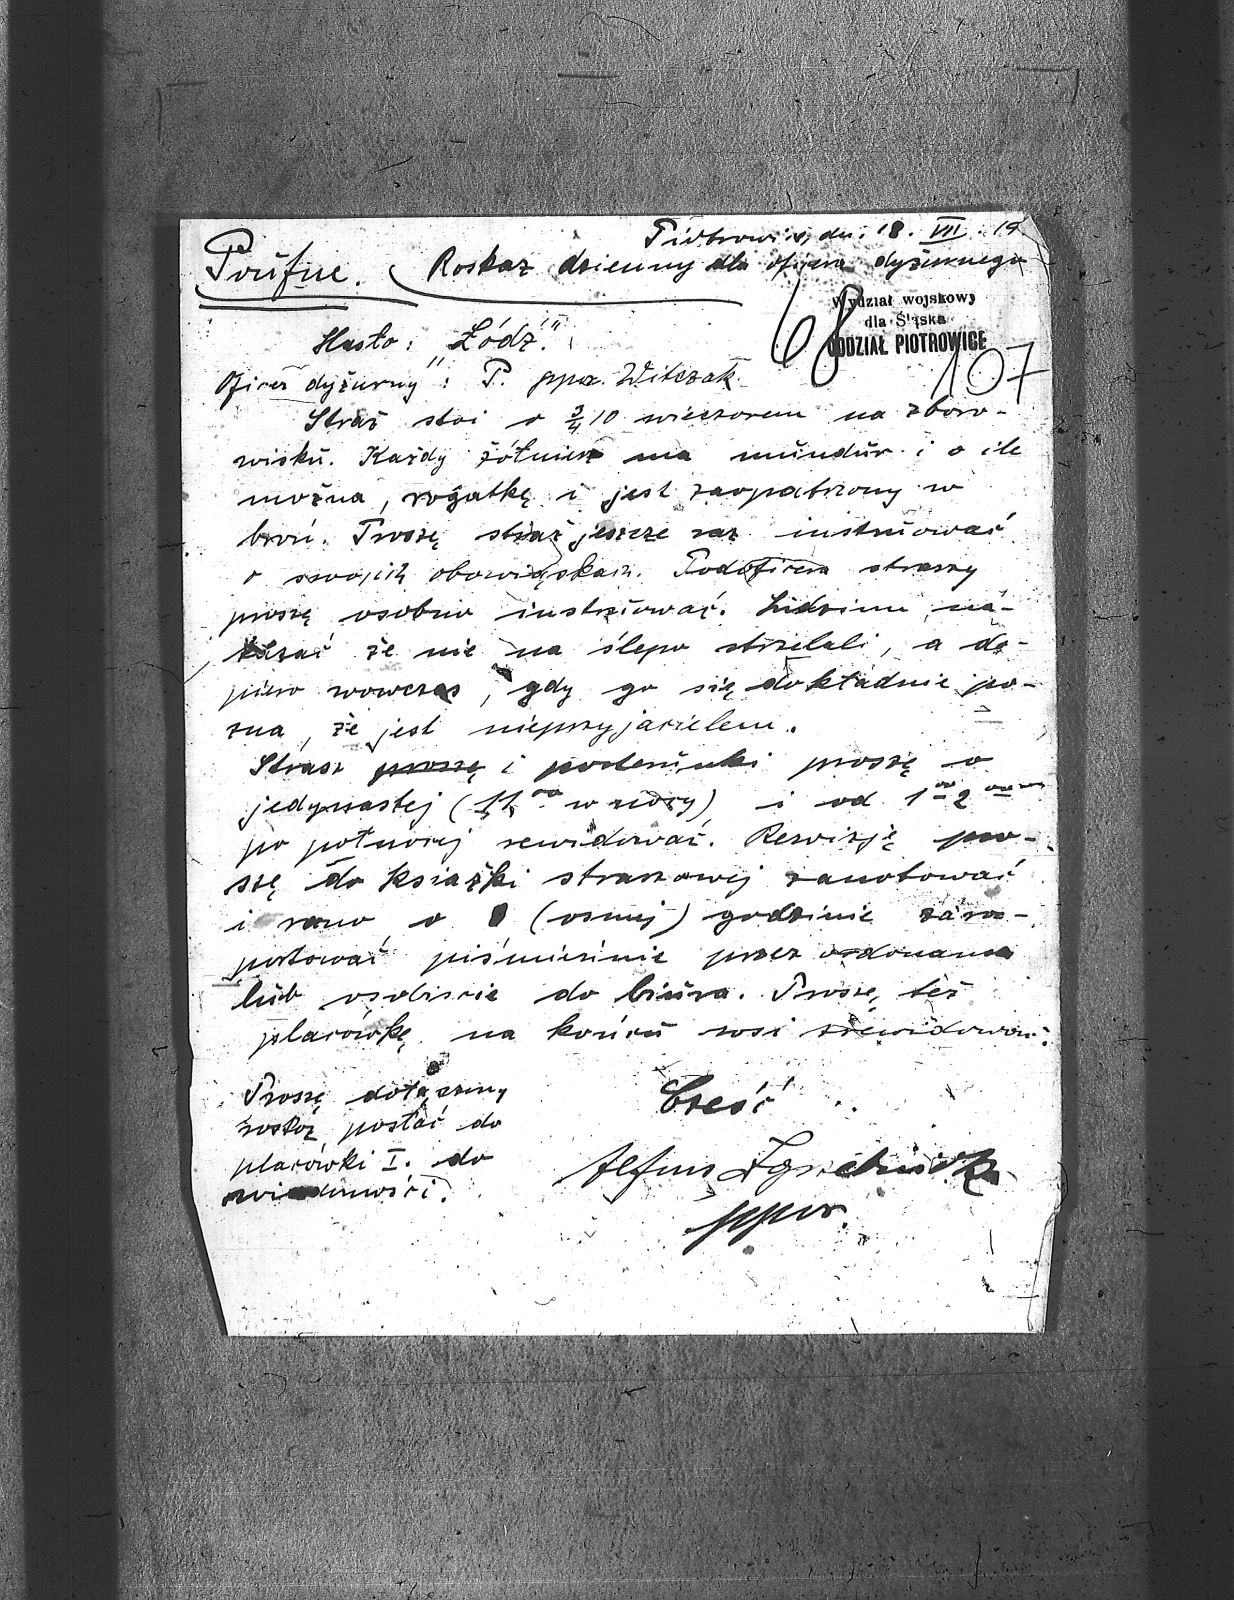 Piotrowice, dn. 18. VIII. 19
Poufne. Roskaz dzienny dla oficera dyżurnego
Wydział wojskowy
dla Śląska
ODDZIAŁ PIOTROWICE
68
107
Hasło: „Łódź".
Oficer dyżurny: P. ppor. Witczak.
Straż stoi o 3/4 10 wieczorem na zboro-
wisku. Każdy żółnierz ma mundur i o ile
można, rogatkę i jest zaopatrzony w
broń. Proszę straż jeszcze raz instruować
o swojich obowiąskach. Podoficera straszy
proszę osobno instruować. Ludziom na-
kazać że nie na ślepo strzelali, a do-
piero wowczas, gdy go się dokładnie po-
zna, że jest nieprzyjacielem.
Strasz proszę i posterunki proszę o
jedynastej (11 oo w nocy) i od 1 oo 2 oo
po połnocy rewidować. Rewizję pro-
szę do ksiażki straszowej zanotować
i rano o 8 (osmej) godzinie zara-
portować piśmiennie przez ordonansa
lub osobiscie do biura. Proszę też
placówkę na końcu wsi zrewidować.
Proszę dołączony
roskaz posłać do
placówki I. do
wiadomości.
Cześć
Alfons Zgrzebniok
ppor.